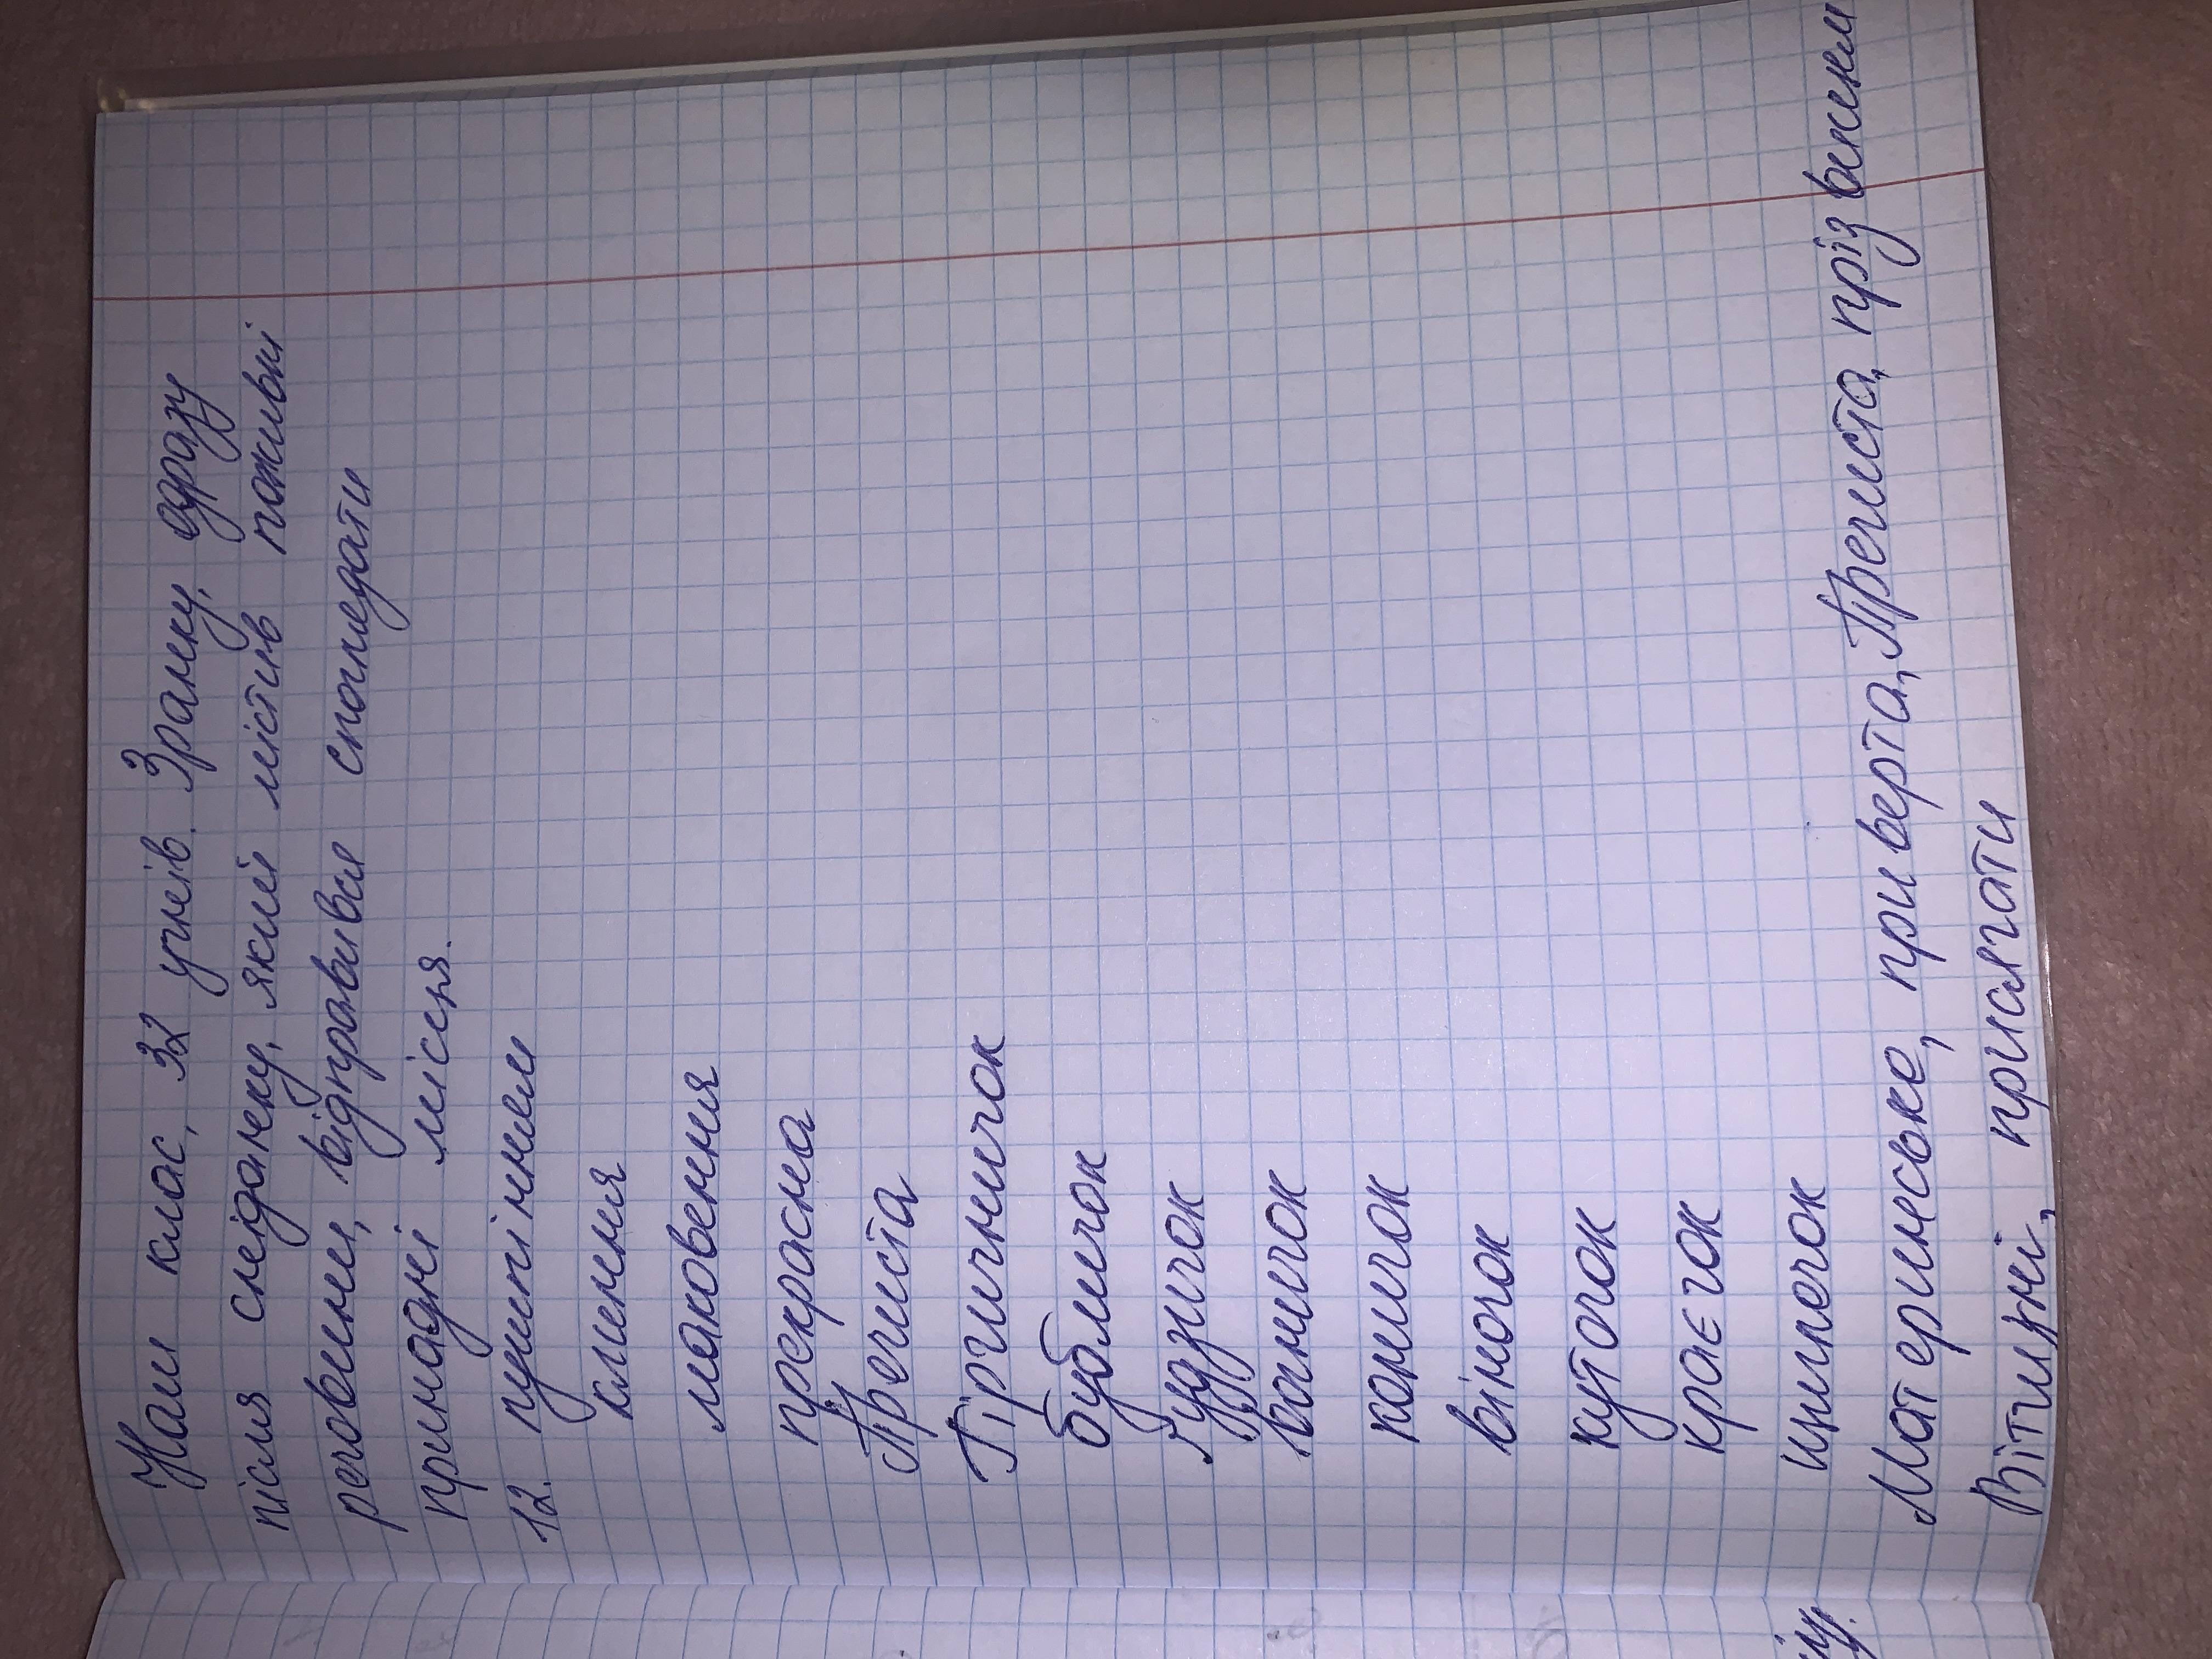 Наш клас, 32 учнів. Зранку, одразу
після сніданку, який містив поживні
речовини, відправився споглядати
принадні місця.
12. пущтінням
кмення
мановення
прекрасна
Пречиста
Тричничок
бубличок
гудзичок
вогничок
коничок
віночок
куточок
краєчок
ципечок
Материнське, при верта, Пречиста, прізвиням
Вітчизні, прилягати
іу.